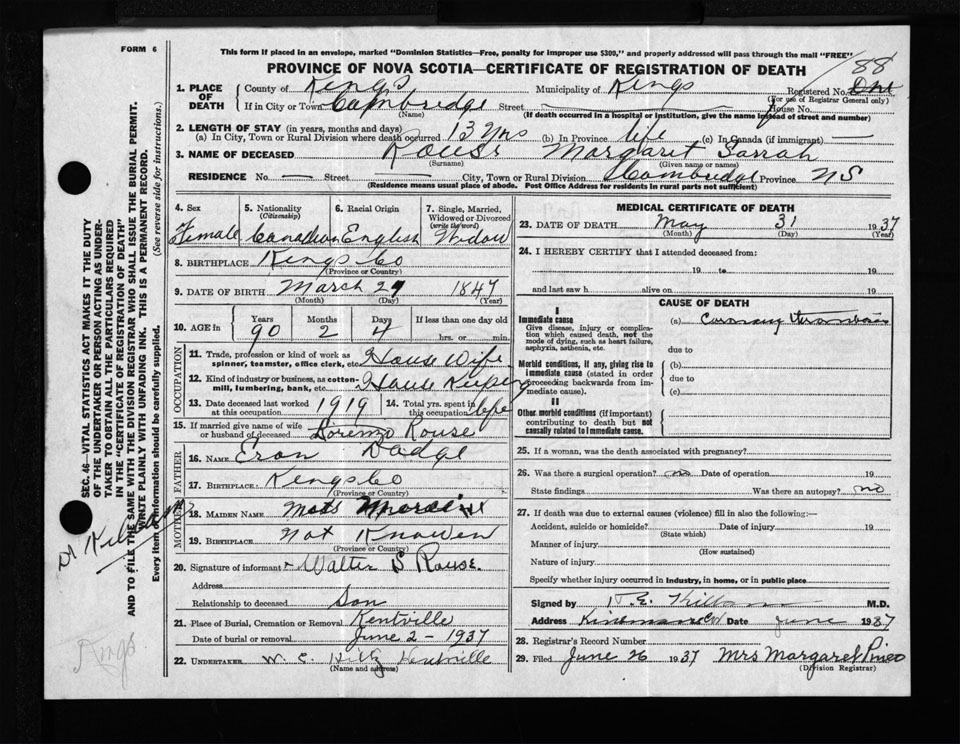 FORM 6
This form if placed in an envelope, marked "Dominion Statistics—Free, penalty for improper use $300," and properly addressed will pass through the mail "FREE"
88
PROVINCE OF NOVA SCOTIA—CERTIFICATE OF REGISTRATION OF DEATH
1. PLACE OF DEATH County of Kings Municipality of Kings Registered No.
(For use of Registrar General only)
If in City or Town Cambridge Street House No.
(Name) (If death occurred in a hospital or institution, give the name instead of street and number)
2. LENGTH OF STAY (in years, months and days)
(a) In City, Town or Rural Division where death occurred 13 yrs (b) In Province life (c) In Canada (if immigrant) —
3. NAME OF DECEASED Rouse Margaret Sarrah
(Surname) (Given name or names)
RESIDENCE No. — Street — City, Town or Rural Division Cambridge Province NS
(Residence means usual place of abode. Post Office Address for residents in rural parts not sufficient)
4. Sex
Female
5. Nationality (Citizenship)
Canadian
6. Racial Origin
English
7. Single, Married, Widowed or Divorced (write the word)
Widow
8. BIRTHPLACE Kings Co
(Province or Country)
9. DATE OF BIRTH March 27 1847
(Month) (Day) (Year)
10. AGE in Years Months Days If less than one day old
90 2 4 hrs. or min.
OCCUPATION
11. Trade, profession or kind of work as spinner, teamster, office clerk, etc. House Wife
12. Kind of industry or business, as cotton-mill, lumbering, bank, etc. House Keeping
13. Date deceased last worked at this occupation 1919 14. Total yrs. spent in this occupation life
15. If married give name of wife or husband of deceased Lorenzo Rouse
FATHER
16. NAME Eron Dodge
17. BIRTHPLACE Kings Co
(Province or Country)
MOTHER
18. MAIDEN NAME
19. BIRTHPLACE Not Knowen
(Province or Country)
20. Signature of informant Walter S Rouse.
Address
Relationship to deceased Son
21. Place of Burial, Cremation or Removal Kentville
Date of burial or removal June 2 - 1937
22. UNDERTAKER W. C. Hiltz Kentville
(Name and address)
MEDICAL CERTIFICATE OF DEATH
23. DATE OF DEATH May 31 1937
(Month) (Day) (Year)
24. I HEREBY CERTIFY that I attended deceased from:
19 to 19
and last saw h alive on 19
CAUSE OF DEATH
I
Immediate cause (a) Coronary thrombosis
Give disease, injury or complication which caused death, not the mode of dying, such as heart failure, asphyxia, asthenia, etc.
due to
Morbid conditions, if any, giving rise to immediate cause (stated in order proceeding backwards from immediate cause).
(b)
due to
(c)
II
Other morbid conditions (if important) contributing to death but not causally related to immediate cause.
25. If a woman, was the death associated with pregnancy?
26. Was there a surgical operation? no Date of operation 19
State findings Was there an autopsy? no
27. If death was due to external causes (violence) fill in also the following:—
Accident, suicide or homicide? Date of injury 19
(State which)
Manner of injury
(How sustained)
Nature of injury
Specify whether injury occurred in industry, in home, or in public place
Signed by M.D.
Address Date June 1937
28. Registrar's Record Number
29. Filed June 26 1937 Mrs Margaret Pineo
(Division Registrar)
SEC. 46—VITAL STATISTICS ACT MAKES IT THE DUTY
OF THE UNDERTAKER OR PERSON ACTING AS UNDER-
TAKER TO OBTAIN ALL THE PARTICULARS REQUIRED
IN THE "CERTIFICATE OF REGISTRATION OF DEATH"
AND TO FILE THE SAME WITH THE DIVISION REGISTRAR WHO SHALL ISSUE THE BURIAL PERMIT.
WRITE PLAINLY WITH UNFADING INK. THIS IS A PERMANENT RECORD.
Every item of information should be carefully supplied. (See reverse side for instructions.)
Kings